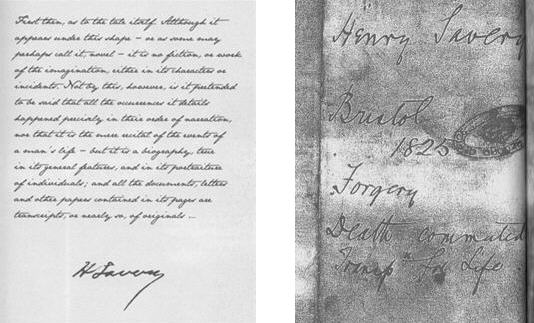 First then, as to the tale itself. Although it
appears under this shape – or as some may
perhaps call it, novel – it is no fiction, or work
of the imagination, either in its characters or
incidents. Not by this, however, is it pretended
to be said that all the occurences it details
happened precisely in their order of narration,
nor that it is the mere recital of the events of
a man's life – but it is a biography, true
in its general features, and in its portraiture
of individuals; and all the documents, letters
and other papers contained in its pages are
transcripts, or nearly so, of originals ...
H Savery
Henry Savery
Bristol
1825
Forgery
Death commuted
Transp<sup>n</sup> for Life